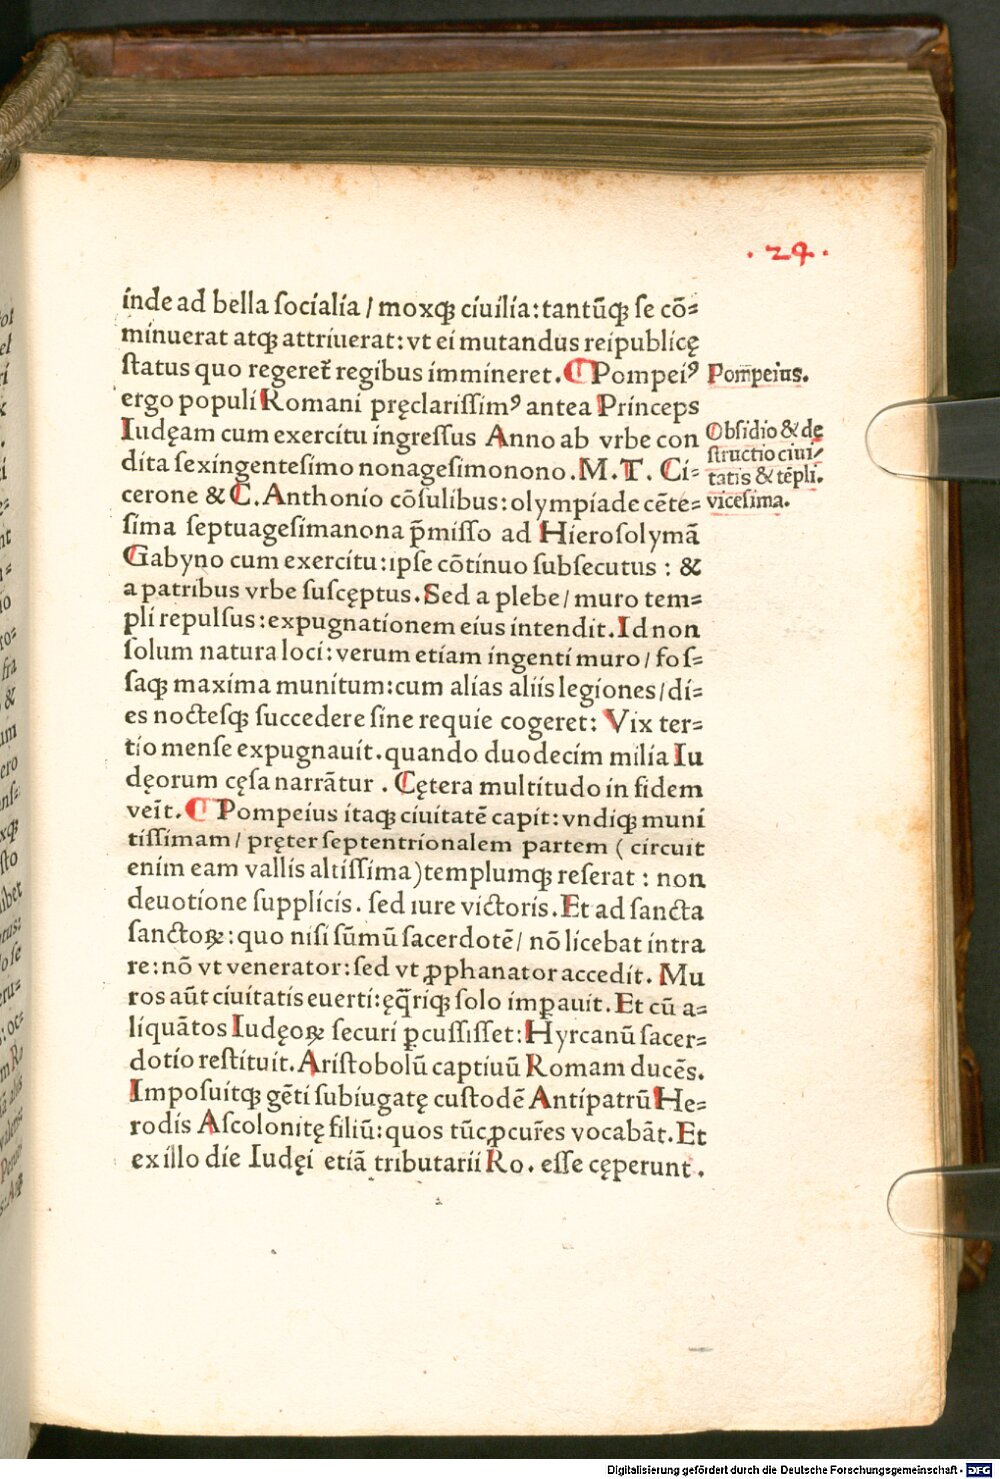 .24.
inde ad bella socialia / moxqꝫ ciuilia: tantūqꝫ se cō=
minuerat atqꝫ attriuerat: vt ei mutandus reipublicę
status quo regeret̃ regibus immineret. ¶ Pompeiꝰ
Pompeius.
ergo populi Romani pręclarissimꝰ antea Princeps
Iudęam cum exercitu ingressus Anno ab vrbe con
dita sexingentesimo nonagesimonono. M. T. Ci=
cerone & C. Anthonio cōsulibus: olympiade cētę=
Obsidio & de
structio ciui/
tatis & tēpli.
vicesima.
sima septuagesimanona p̄misso ad Hierosolymā
Gabyno cum exercitu: ipse cōtinuo subsecutus : &
a patribus vrbe suscęptus. Sed a plebe / muro tem=
pli repulsus: expugnationem eius intendit. Id non
solum natura loci: verum etiam ingenti muro / fos=
saqꝫ maxima munitum: cum alias aliis legiones / di=
es noctesqꝫ succedere sine requie cogeret: Vix ter=
tio mense expugnauit. quando duodecim milia Iu
dęorum cęsa narrātur . Cętera multitudo in fidem
veīt. ¶ Pompeius itaqꝫ ciuitatē capit: vndiqꝫ muni
tissimam / pręter septentrionalem partem ( circuit
enim eam vallis altissima) templumqꝫ reserat : non
deuotione supplicis. sed iure victoris. Et ad sancta
sanctoꝝ: quo nisi sūmū sacerdotē / nō licebat intra
re: nō vt venerator: sed vt ꝓphanator accedit. Mu
ros aūt ciuitatis euerti: ęq̄riqꝫ solo imꝑauit. Et cū a=
liquātos Iudęoꝝ securi ꝑcussisset: Hyrcanū sacer=
dotio restituit. Aristobolū captiuū Romam ducēs.
Imposuitqꝫ gēti subiugatę custodē Antipatrū He=
rodis Ascolonitę filiū: quos tūc ꝓcur̃es vocabāt. Et
ex illo die Iudęi etiā tributarii Ro. esse cęperunt .
Digitalisierung gefördert durch die Deutsche Forschungsgemeinschaft - DFG